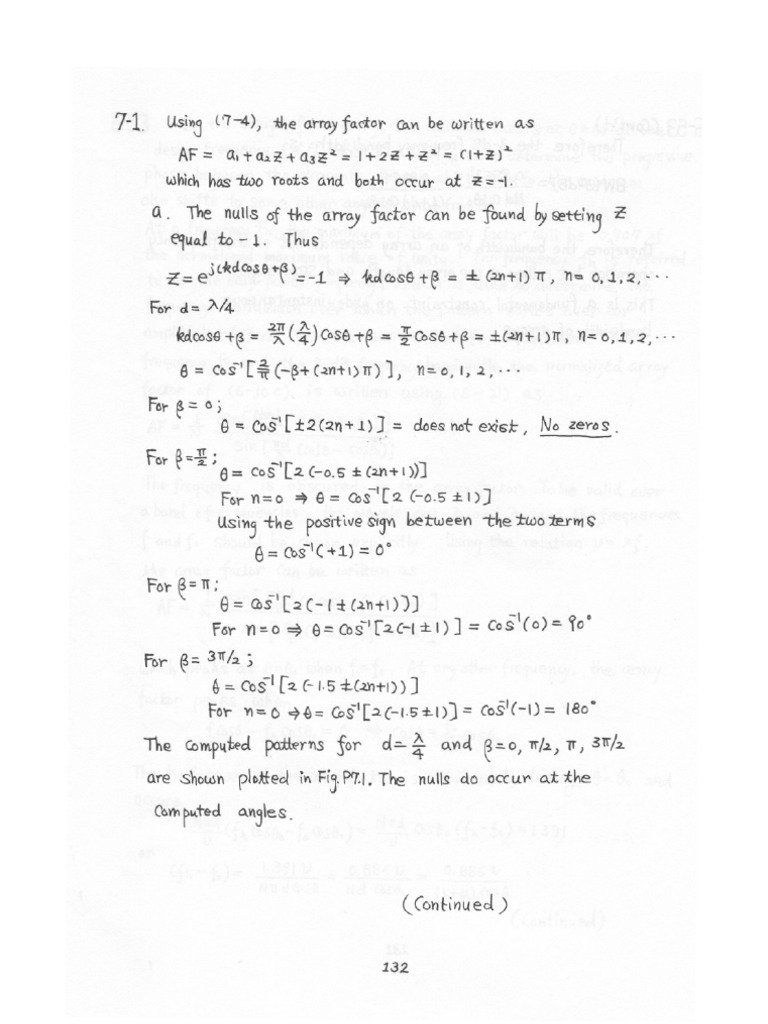 7-1. Using (7-4), the array factor can be written as
AF = a₁+a₂z+a₃z² = 1+2z+z² = (1+z)²
which has two roots and both occur at z=-1.
a. The nulls of the array factor can be found by setting z
equal to -1. Thus
z=e^j(kdcosθ+β)=-1 ⇒ kdcosθ+β = ±(2n+1)π, n=0,1,2,···
For d=λ/4
kdcosθ+β = 2π/λ(λ/4)cosθ+β = π/2cosθ+β = ±(2n+1)π, n=0,1,2,···
θ = cos⁻¹[2/π(-β+(2n+1)π)], n=0,1,2,···
For β=0;
θ = cos⁻¹[±2(2n+1)] = does not exist, No zeros.
For β=π/2;
θ = cos⁻¹[2(-0.5 ± (2n+1))]
For n=0 ⇒ θ = cos⁻¹[2(-0.5±1)]
Using the positive sign between the two terms
θ = cos⁻¹(+1) = 0°
For β=π;
θ = cos⁻¹[2(-1±(2n+1))]
For n=0 ⇒ θ = cos⁻¹[2(-1±1)] = cos⁻¹(0) = 90°
For β=3π/2;
θ = cos⁻¹[2(-1.5±(2n+1))]
For n=0 ⇒ θ = cos⁻¹[2(-1.5±1)] = cos⁻¹(-1) = 180°
The computed patterns for d=λ/4 and β=0, π/2, π, 3π/2
are shown plotted in Fig.P7.1. The nulls do occur at the
computed angles.
(Continued)
132